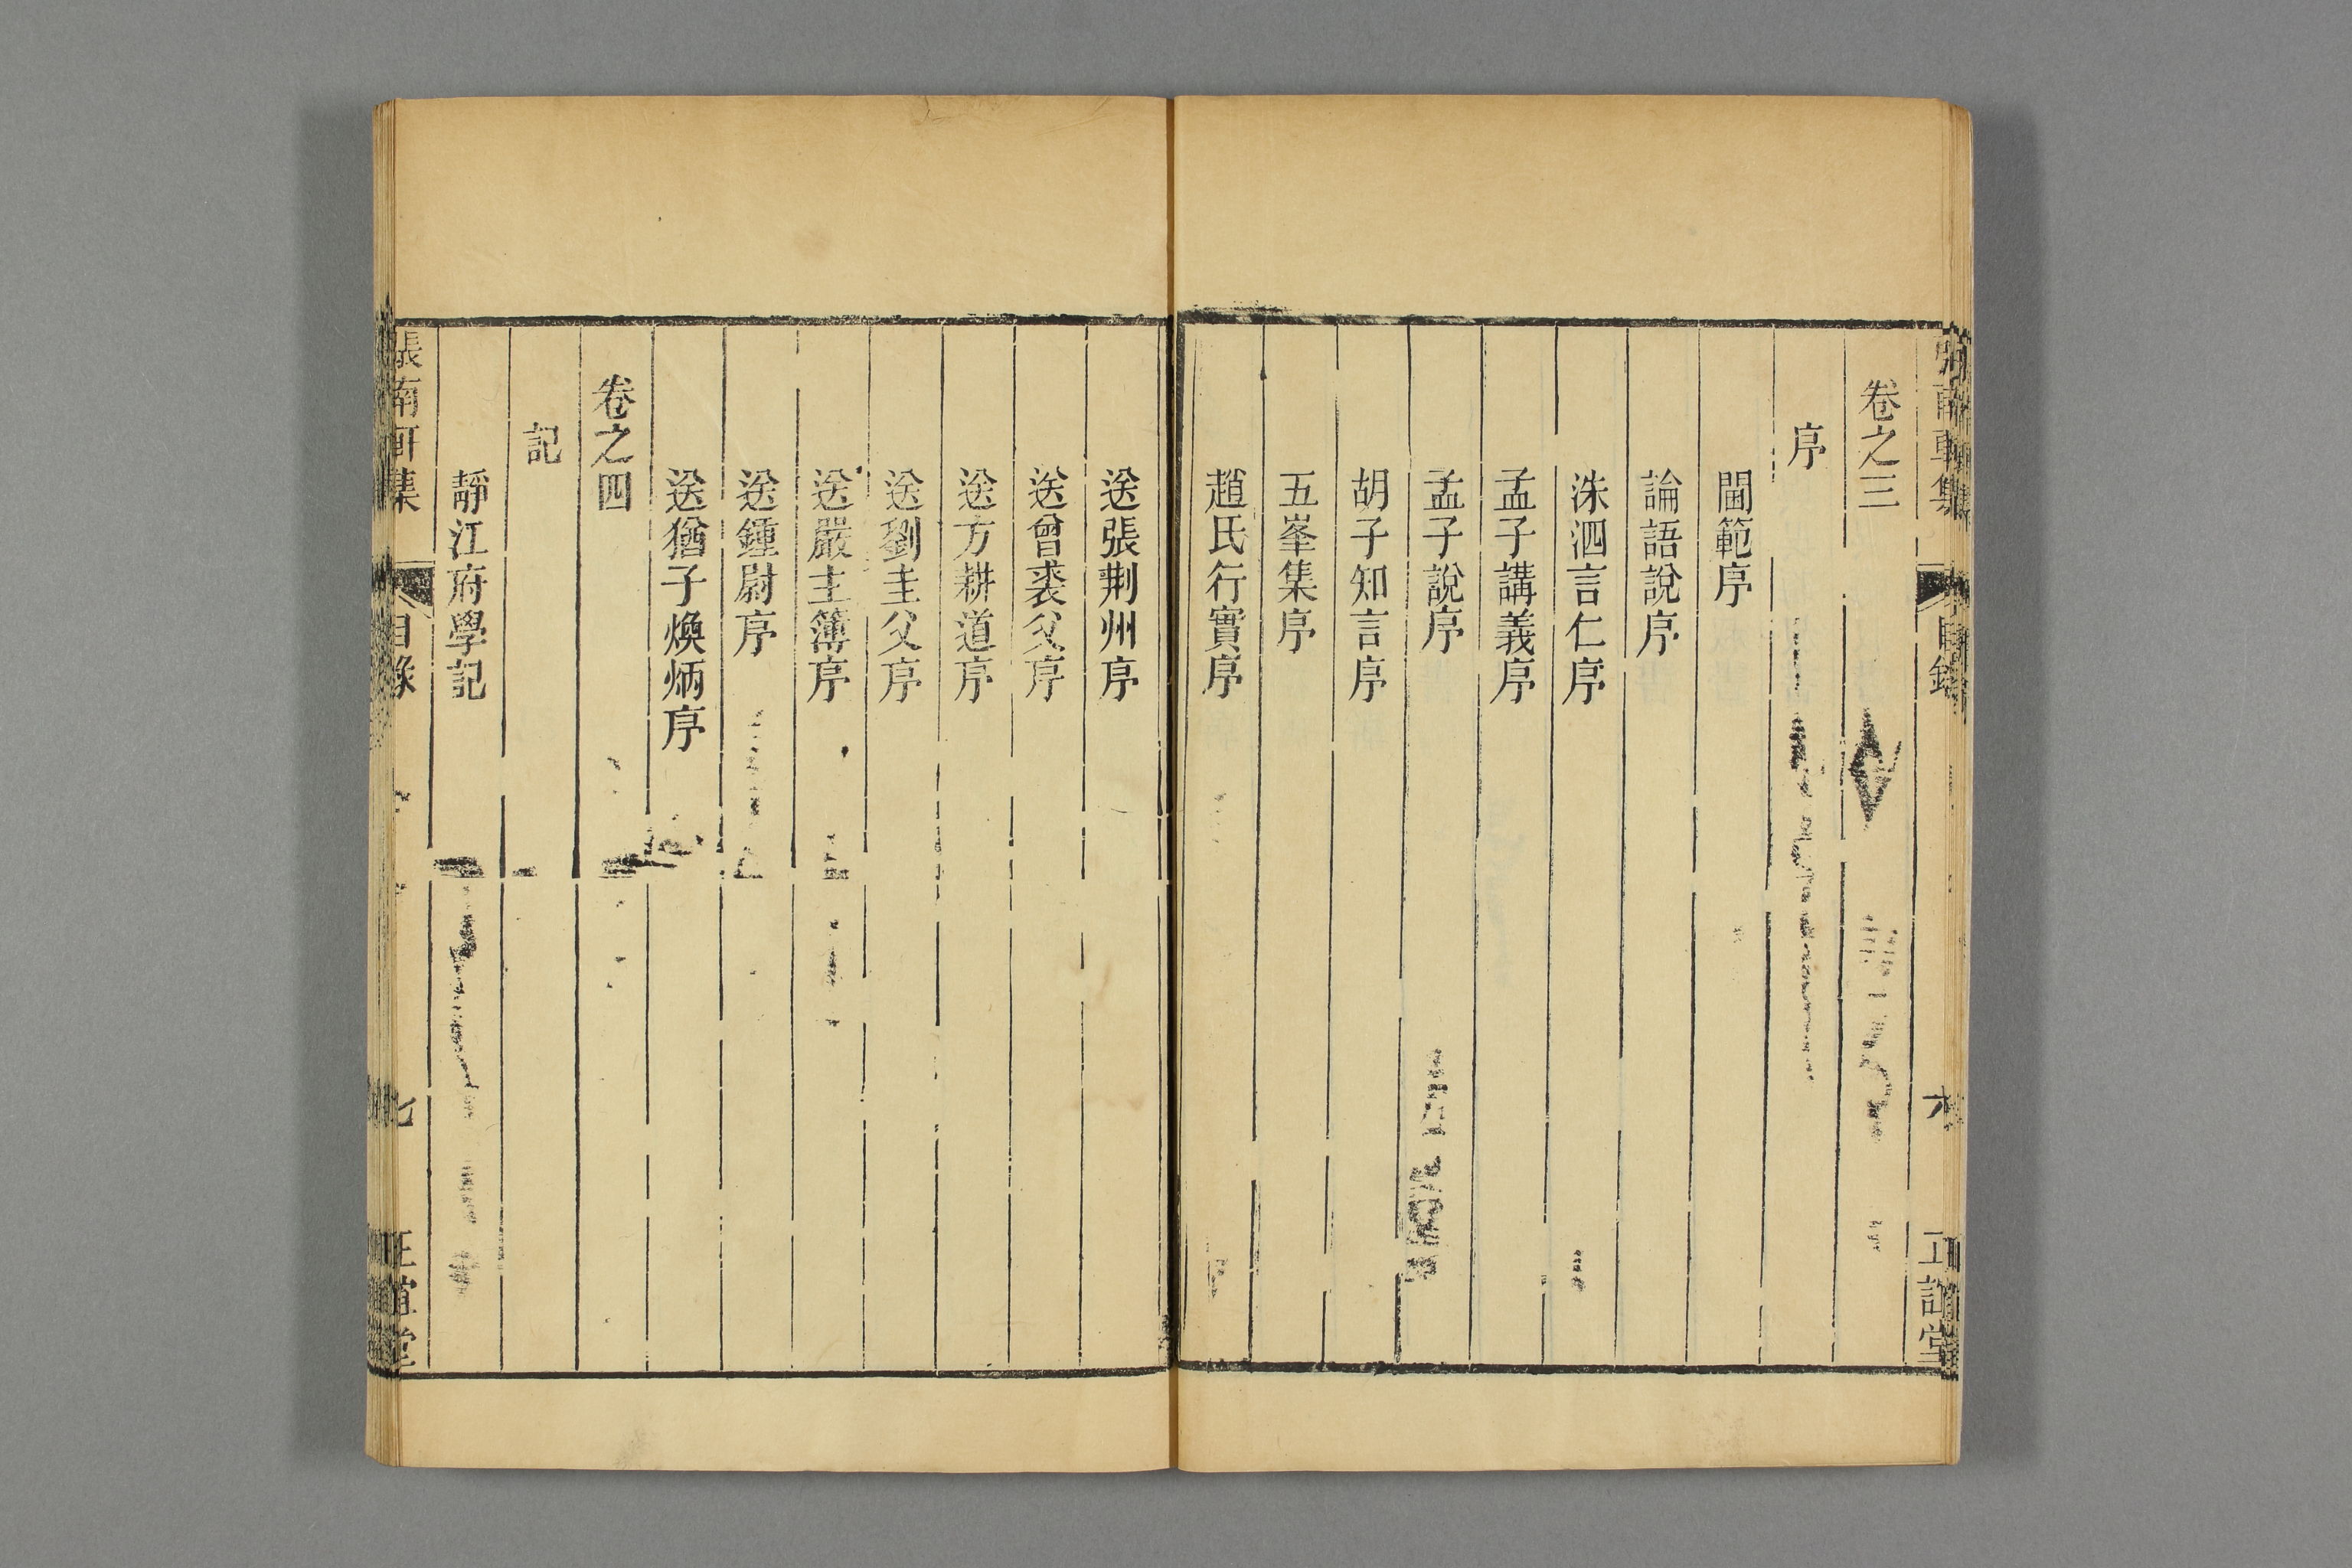 卷之三
序
閫範序
論語說序
洙泗言仁序
孟子講義序
孟子說序
胡子知言序
五峯集序
趙氏行實序
送張荆州序
送曾裘父序
送方耕道序
送劉圭父序
送嚴主簿序
送鍾尉序
送猶子煥炳序
卷之四
記
靜江府學記
張南軒集
目錄
七
正誼堂